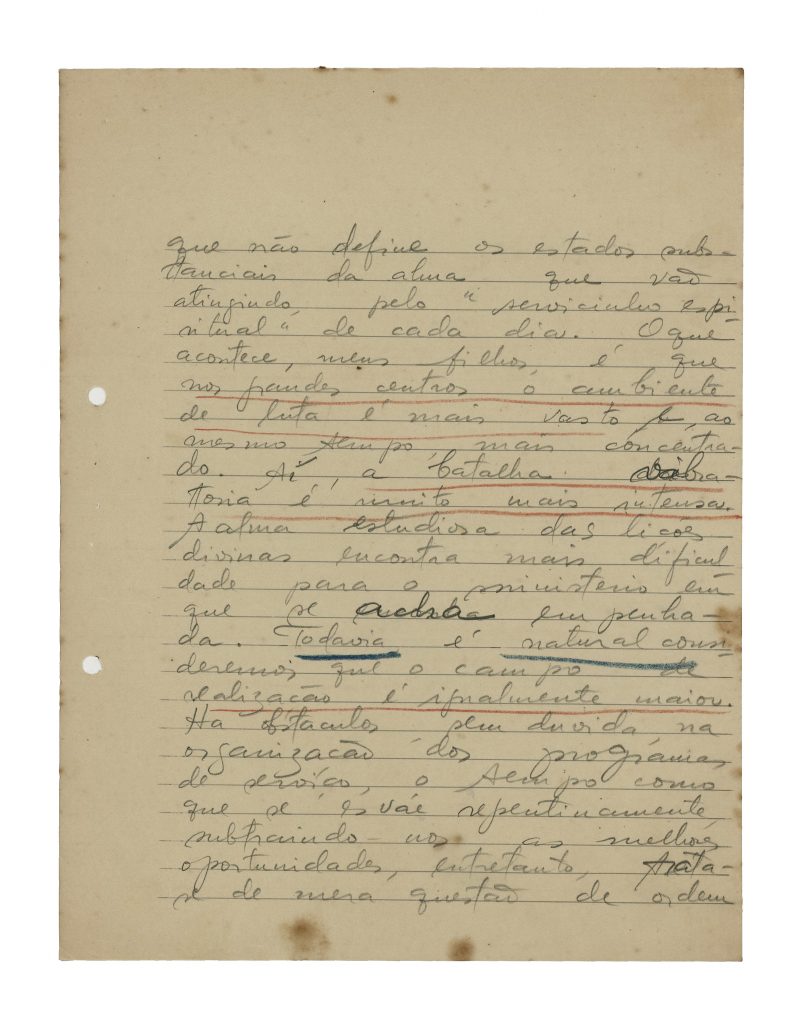 que não define os estados subs-
tanciais da alma que vão
atingindo, pelo "servicinho espi-
ritual" de cada dia. O que
acontece, meus filhos, é que
nos grandes centros o ambiente
de luta é mais vasto e, ao
mesmo tempo, mais concentra-
do. Aí, a batalha vibra-
toria é muito mais intensa.
A alma estudiosa das lições
divinas encontra mais dificul
dade para o ministerio em
que se acha empenha-
da. Todavia é natural consi-
deremos que o campo de
realização é igualmente maior.
Ha obstaculos sem duvida, na
organização dos programas
de serviço, o tempo como
que se esváe repentinamente,
subtraindo-nos as melhores
oportunidades, entretanto, trata-
se de mera questão de ordem